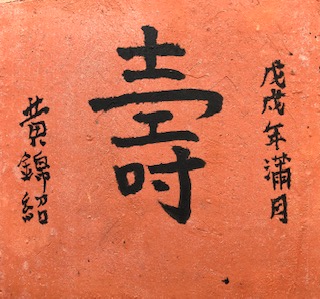 戊戌年滿月
壽
黄錦紹